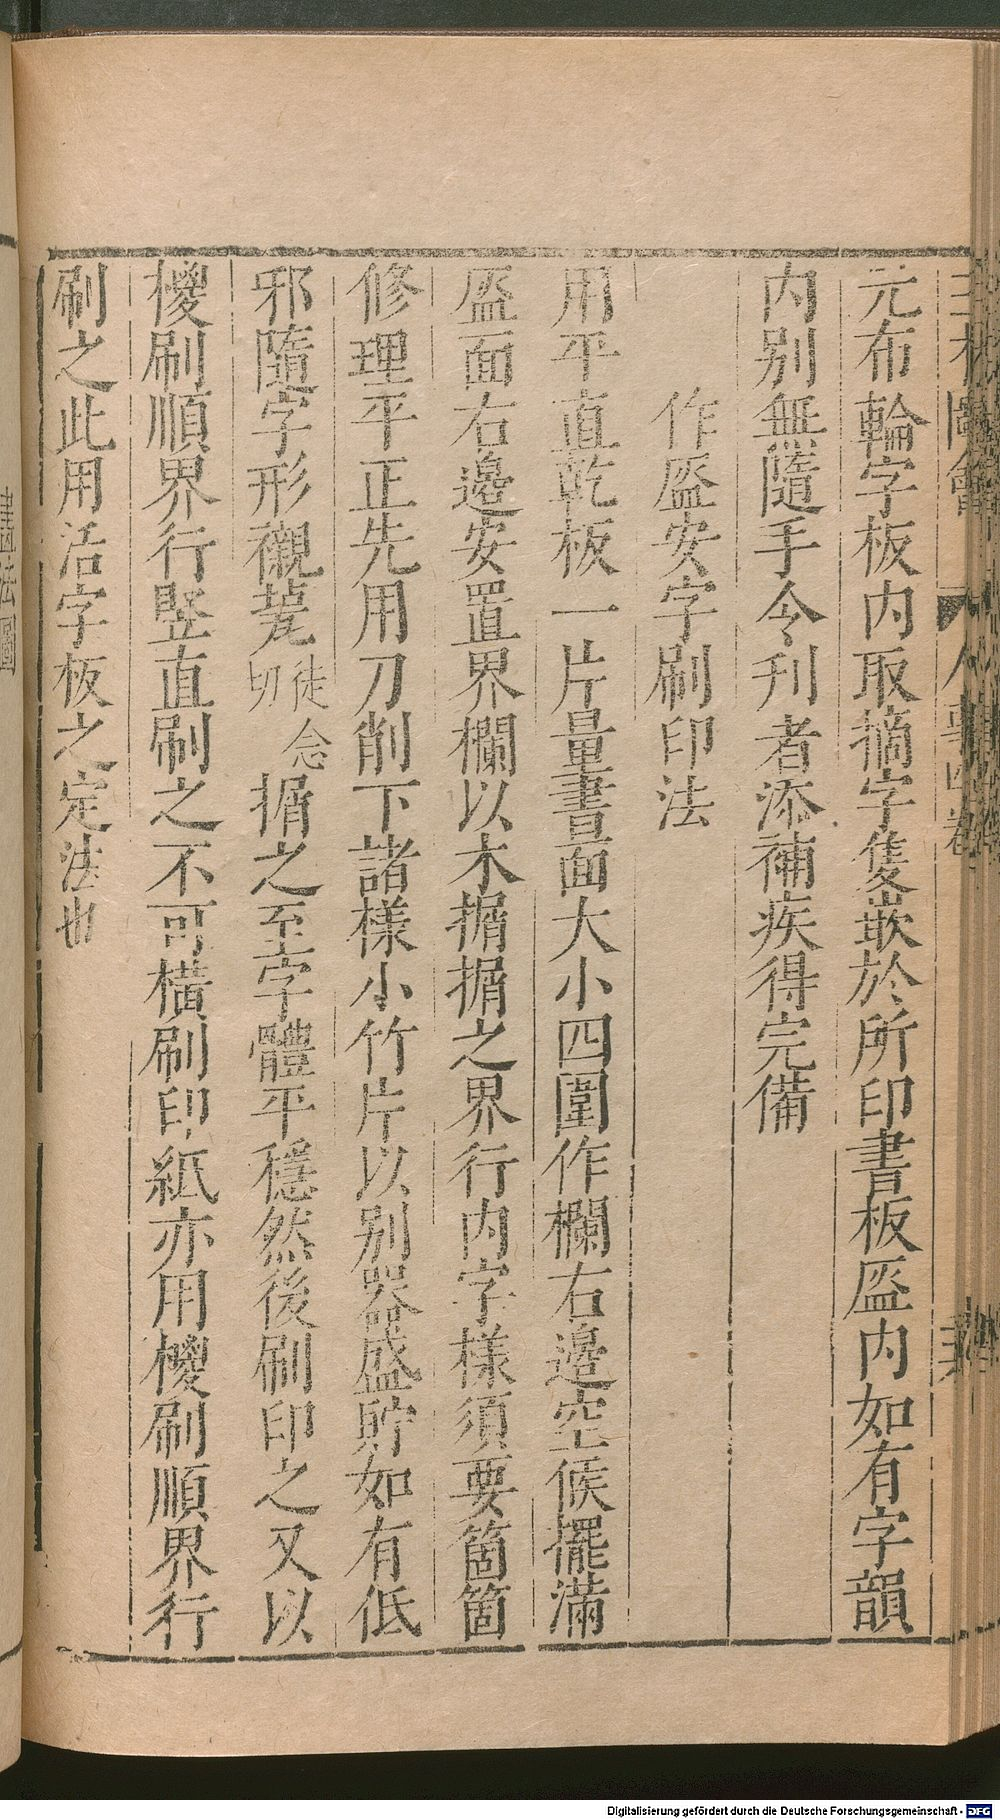 元布輪字板内取摘字隻嵌於所印書板盔内如有字韻
内别無隨手令刋者添補疾得完備
作盔安字刷印法
用平直乾板一片量書面大小四圍作欄右邉空候擺滿
盔面右邉安置界欄以木㨝㨝之界行内字樣須要箇箇
修理平正先用刀削下諸樣小竹片以别器盛貯如有低
邪隨字形襯㽃徒念切㨝之至字體平穩然後刷印之又以
㯶刷順界行竪直刷之不可橫刷印紙亦用㯶刷順界行
刷之此用活字板之定法也
畫法圖
Digitalisierung gefördert durch die Deutsche Forschungsgemeinschaft - DFG